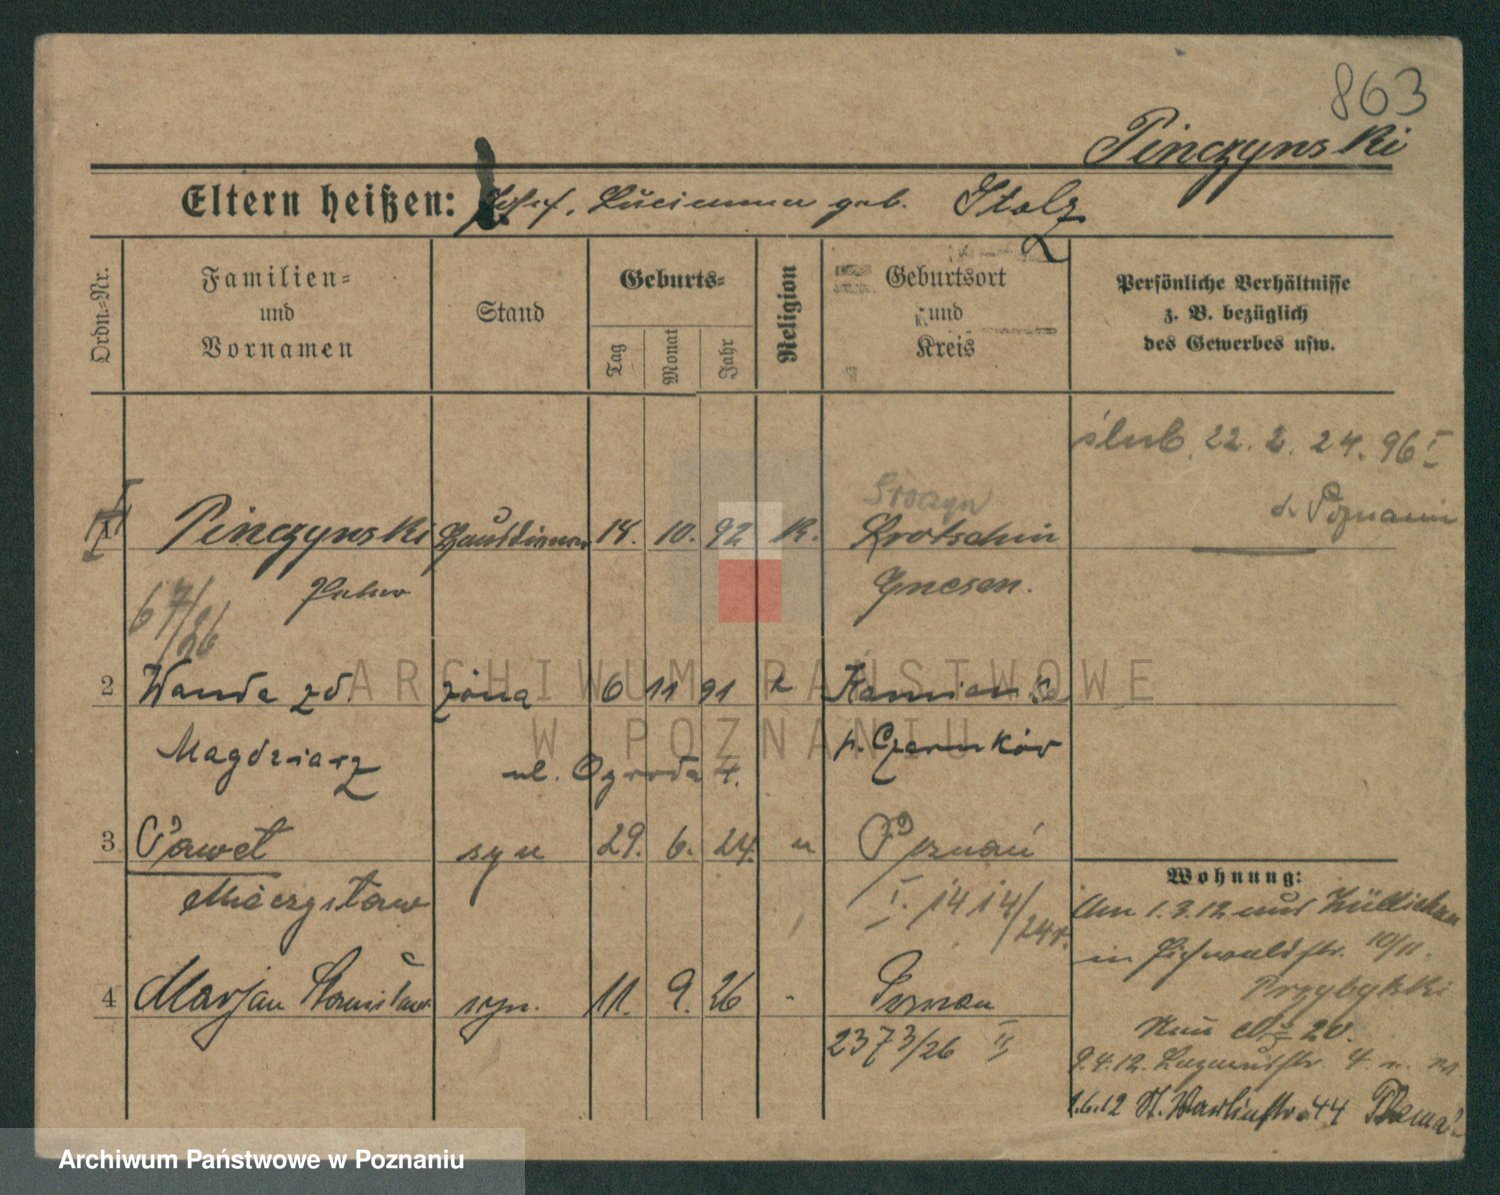 863
Pinczynski
Eltern heißen: Josef, Lucienna geb. Stolz
Ordn.-Nr.
Familien-
und
Vornamen
Stand
Geburts-
Tag
Monat
Jahr
Religion
Geburtsort
und
Kreis
Persönliche Verhältnisse
z. B. bezüglich
des Gewerbes usw.
ślub. 22. 2. 24. 96 I
Poznaniu
1 Pinczynski Hausdiener 18. 10. 92 K. Krotoschin
Gnesen.
67/26
2 Wanda zd. żona 6 11 91 k
Magdziarz ul. Ogroda 4. p. Czarnków
3 Paweł syn 29. 6. 24. Poznań
Mieczysław I. 1414/24
4 Marjan Stanisław syn. 11. 9. 26 - Poznan
2373/26 II
Wohnung:
Am 1.3.12 aus Züllichau
in Fischereistr. 10/11.
Przybylski
20.
9.4.12. Lazarusstr. 4.
1.6.12 St. Martinstr. 44
ARCHIWUM PAŃSTWOWE
W POZNANIU
Archiwum Państwowe w Poznaniu